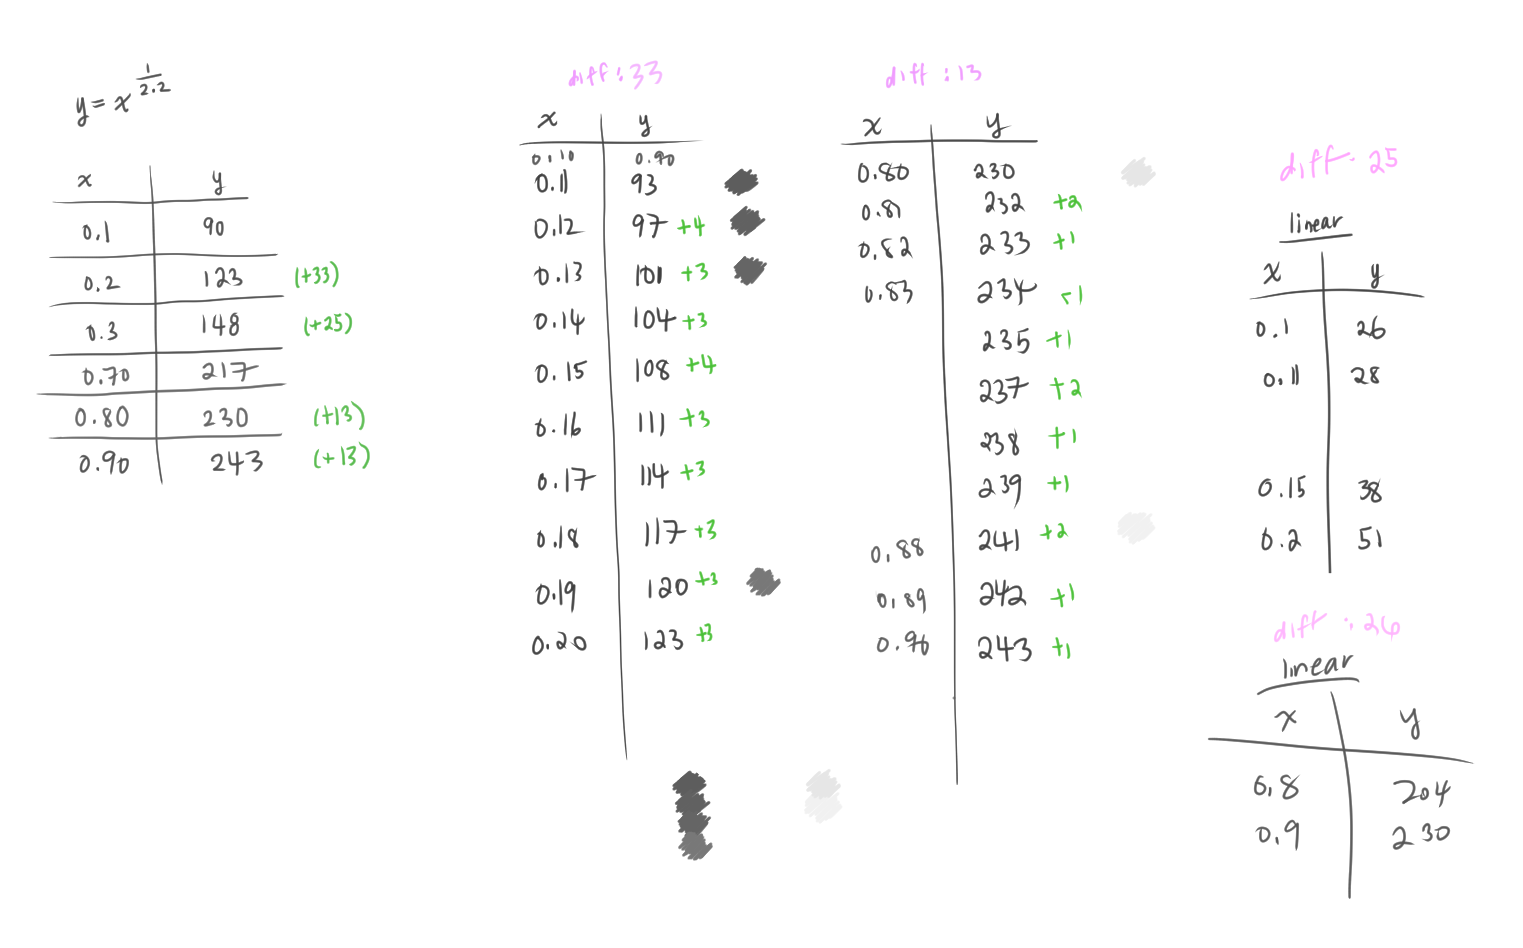 y = x^(1/2.2)
x y
0.1 90
0.2 123 (+33)
0.3 148 (+25)
0.70 217
0.80 230 (+13)
0.90 243 (+13)
diff : 33
x y
0.10 0.90
0.11 93
0.12 97 +4
0.13 101 +3
0.14 104 +3
0.15 108 +4
0.16 111 +3
0.17 114 +3
0.18 117 +3
0.19 120 +3
0.20 123 +3
diff : 13
x y
0.80 230
0.81 232 +2
0.82 233 +1
0.83 234 +1
235 +1
237 +2
238 +1
239 +1
0.88 241 +2
0.89 242 +1
0.90 243 +1
diff : 25
linear
x y
0.1 26
0.11 28
0.15 38
0.2 51
diff : 26
linear
x y
0.8 204
0.9 230